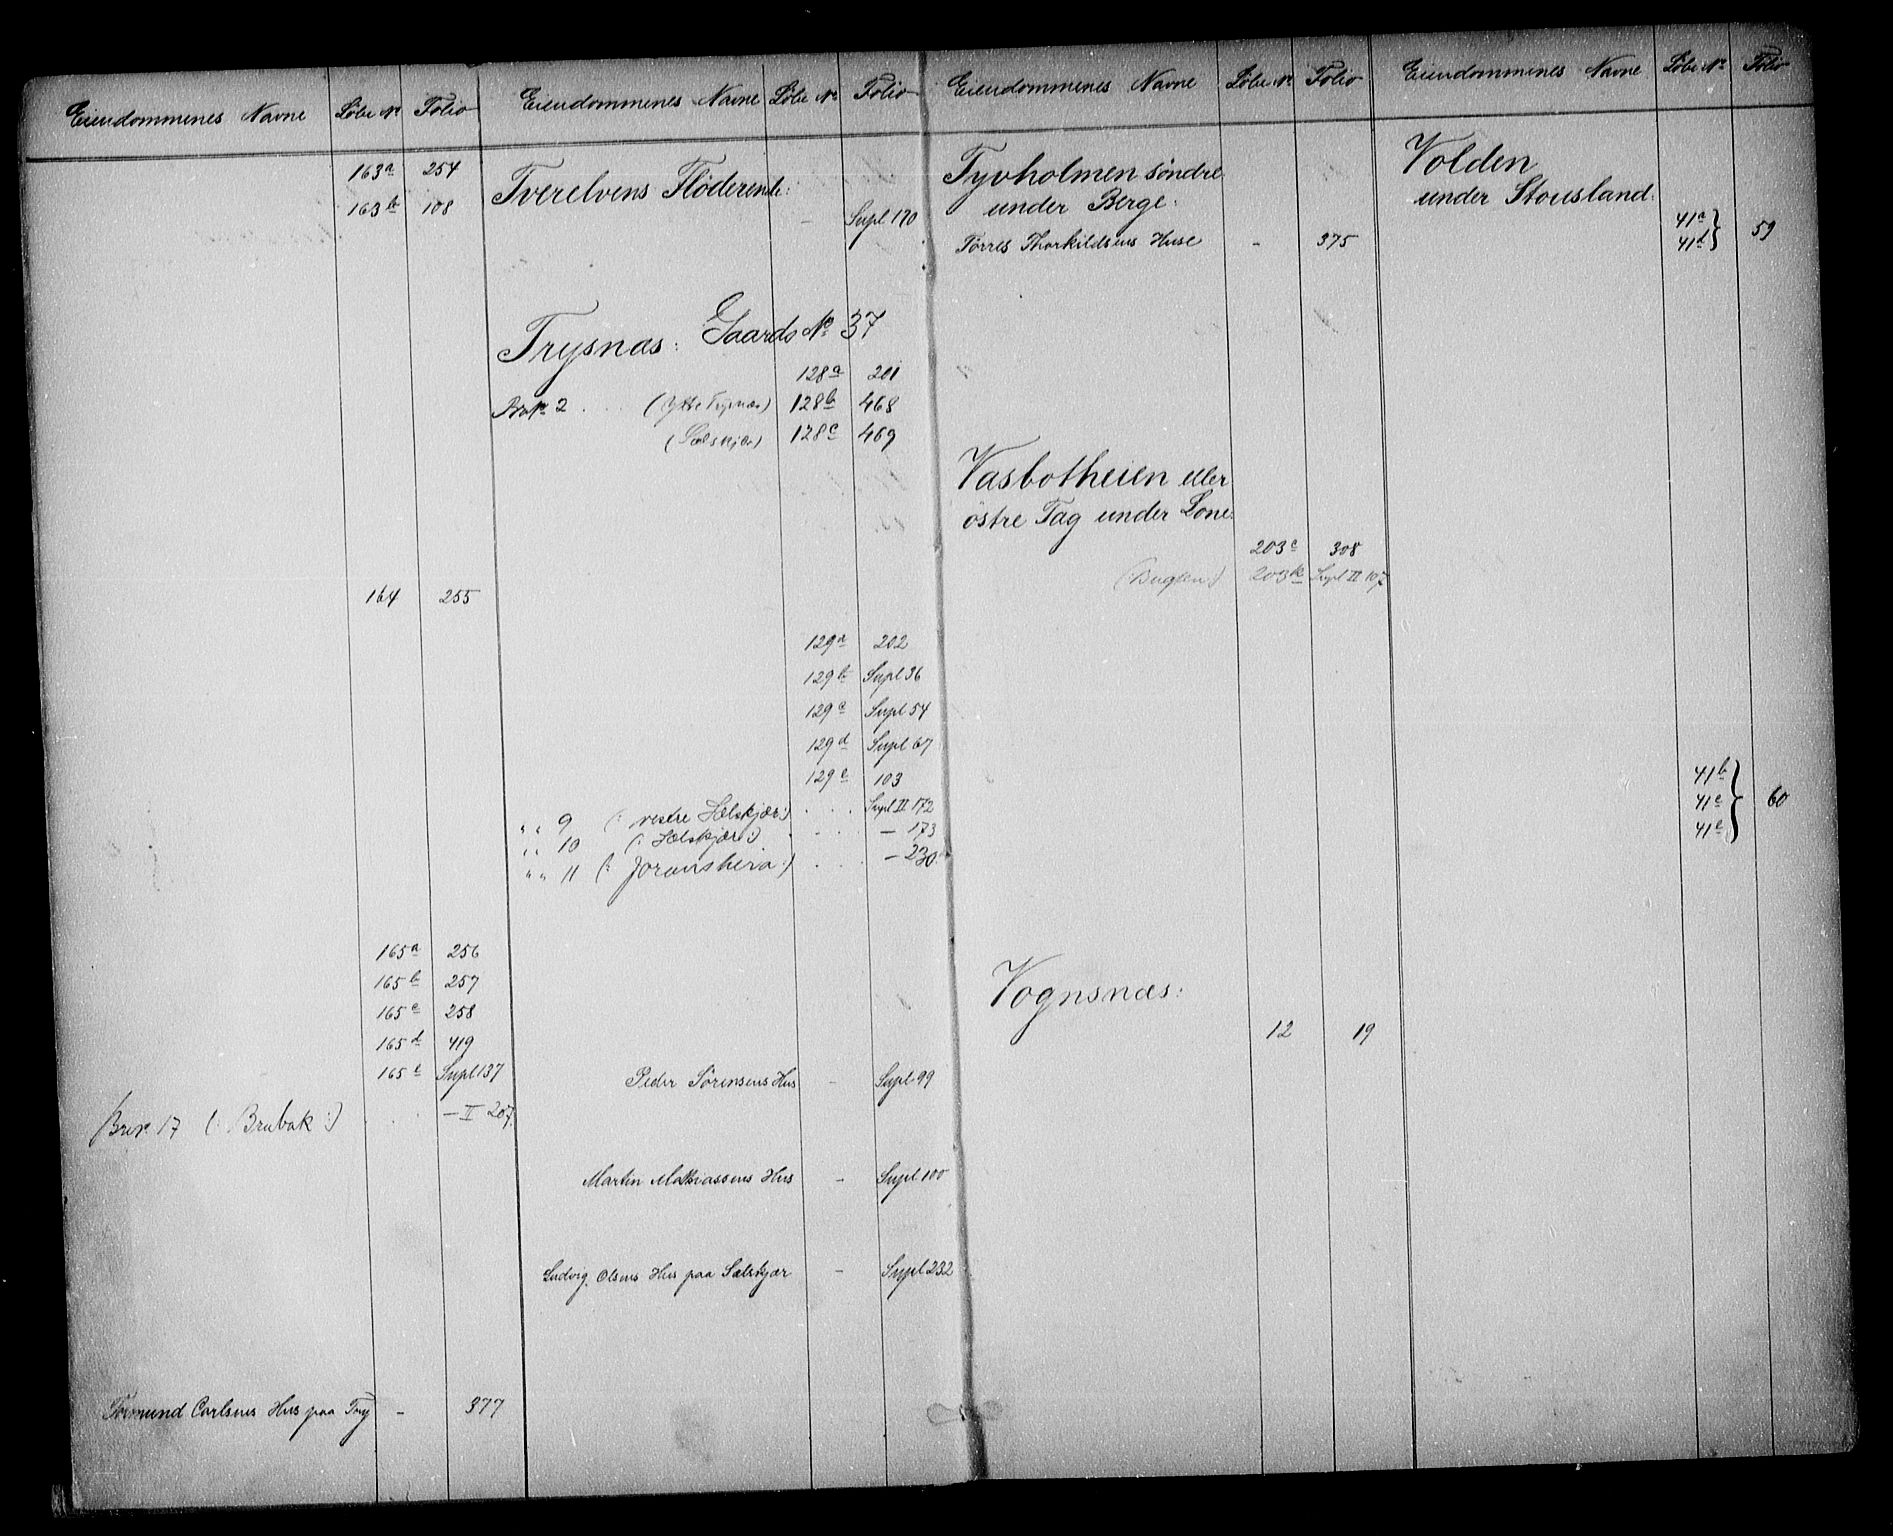 Eiendommenes Navne Løbe No Folio
163a 254
163b 108
164 255
165a 256
165b 257
165c 258
165d 419
165e Supl 137
Brn 17 (: Brubak :) . . — II 207.
Tormund Carlsens Hus paa Try - 377
Eiendommenes Navne Løbe No Folio
Tverelvens Flöderende:
- Supl 170
Trysnæs: Gaards No 37
128a 201
Brn 2 . . . (Ytre Trysnæs) 128b 468
(Sælskjær) 128c 469
129a 202
129b Supl 36
129c Supl 54
129d Supl 67
129e 103
" " 9 (: vestre Sælskjær :) . . . Supl II 172
" " 10 (: Sælskjær :) . . . — 173
" " 11 (: Joransheia :) . . . — 230.
Peder Sörensens Hus - Supl 99
Martin Mathiassens Hus - Supl 100
Ludvig Olsens Hus paa Sælskjær - Supl 232
Eiendommenes Navne Løbe No Folio
Tyvholmen söndre
under Berge:
Tørres Thorkildsens Huse - 375
Vasbotheien eller
östre Tag under Lone:
203c 308
203k Supl II 107
Vognsnæs:
12 19
Eiendommenes Navne Løbe No Folio
Volden
under Stousland:
41a }
41d } 59
41b }
41c } 60
41e }